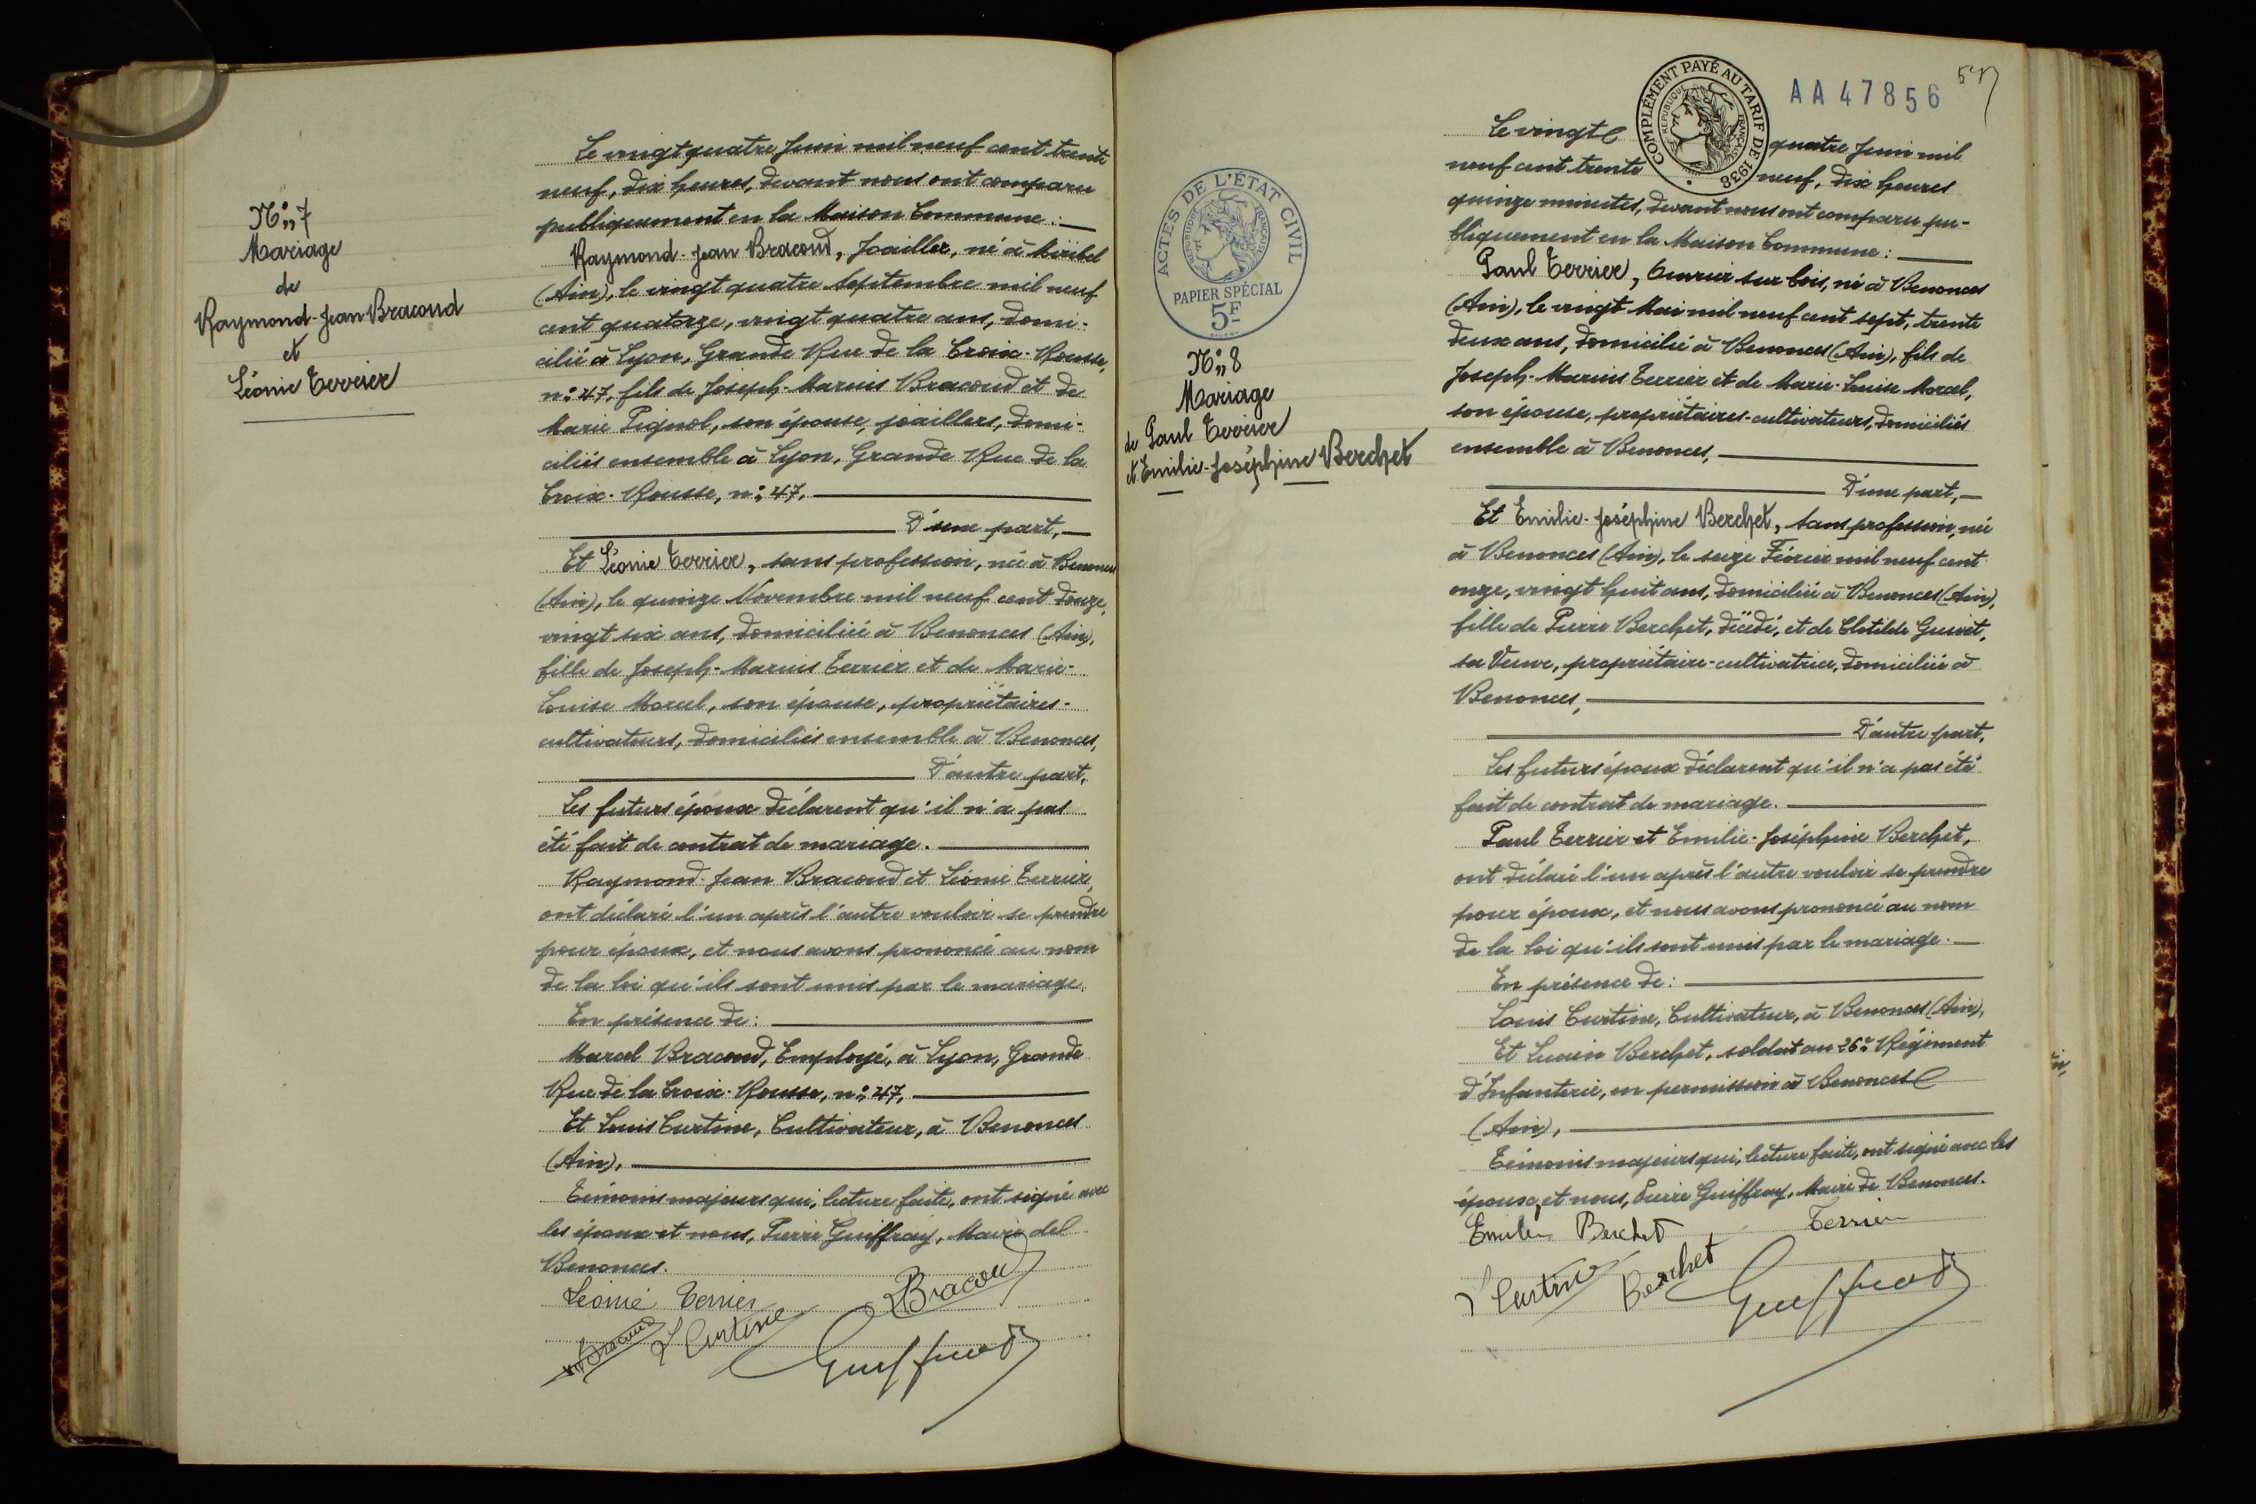 N° 7
Mariage
de
Raymond-Jean Bracoud
et
Léonie Terrier
Le vingt quatre Juin mil neuf cent trente
neuf, dix heures, devant nous ont comparu
publiquement en la Maison Commune :
Raymond-Jean Bracoud, Joailler, né à Miribel
(Ain), le vingt quatre Septembre mil neuf
cent quatorze, vingt quatre ans, domi-
cilié à Lyon, Grande Rue de la Croix-Rousse,
n° 47, fils de Joseph-Marius Bracoud et de
Marie Pignol, son épouse, joaillers, domi-
ciliés ensemble à Lyon, Grande Rue de la
Croix-Rousse, n° 47,
D'une part,
Et Léonie Terrier, sans profession, née à Benonces
(Ain), le quinze Novembre mil neuf cent douze,
vingt six ans, domiciliée à Benonces (Ain),
fille de Joseph-Marius Terrier et de Marie-
Louise Morel, son épouse, propriétaires-
cultivateurs, domiciliés ensemble à Benonces,
D'autre part.
Les futurs époux déclarent qu'il n'a pas
été fait de contrat de mariage.
Raymond-Jean Bracoud et Léonie Terrier,
ont déclaré l'un après l'autre vouloir se prendre
pour époux, et nous avons prononcé au nom
de la loi qu'ils sont unis par le mariage.
En présence de :
Marcel Bracoud, Employé, à Lyon, Grande
Rue de la Croix-Rousse, n° 47,
Et Louis Curtine, Cultivateur, à Benonces
(Ain),
Témoins majeurs qui, lecture faite, ont signé avec
les époux et nous, Pierre Guiffray, Maire de
Benonces.
Léonie Terrier
RBracoud
MBracoud
L Curtine
Guiffray
AA 47856
COMPLÉMENT PAYÉ AU TARIF DE 1938
RÉPUBLIQUE FRANÇAISE
ACTES DE L'ÉTAT CIVIL
RÉPUBLIQUE FRANÇAISE
PAPIER SPÉCIAL
5F
N° 8
Mariage
de Paul Terrier
et Emilie-Joséphine Berchet
Le vingt quatre Juin mil
neuf cent trente neuf, dix heures
quinze minutes, devant nous ont comparu pu-
bliquement en la Maison Commune :
Paul Terrier, Ouvrier sur bois, né à Benonces
(Ain), le vingt Mai mil neuf cent sept, trente
deux ans, domicilié à Benonces (Ain), fils de
Joseph-Marius Terrier et de Marie-Louise Morel,
son épouse, propriétaires-cultivateurs, domiciliés
ensemble à Benonces,
D'une part,
Et Emilie-Joséphine Berchet, sans profession, née
à Benonces (Ain), le seize Février mil neuf cent
onze, vingt huit ans, domiciliée à Benonces (Ain),
fille de Pierre Berchet, décédé, et de Clotilde
sa Veuve, propriétaire-cultivatrice, domiciliée à
Benonces,
D'autre part.
Les futurs époux déclarent qu'il n'a pas été
fait de contrat de mariage.
Paul Terrier et Emilie-Joséphine Berchet,
ont déclaré l'un après l'autre vouloir se prendre
pour époux, et nous avons prononcé au nom
de la loi qu'ils sont unis par le mariage.
En présence de :
Louis Curtine, Cultivateur, à Benonces (Ain),
Et Lucien Berchet, soldat au 26e Régiment
d'Infanterie, en permission à Benonces
(Ain),
Témoins majeurs qui, lecture faite, ont signé avec les
époux et nous, Pierre Guiffray, Maire de Benonces.
Emilie Berchet
Terrier
L Curtine
Berchet
Guiffray